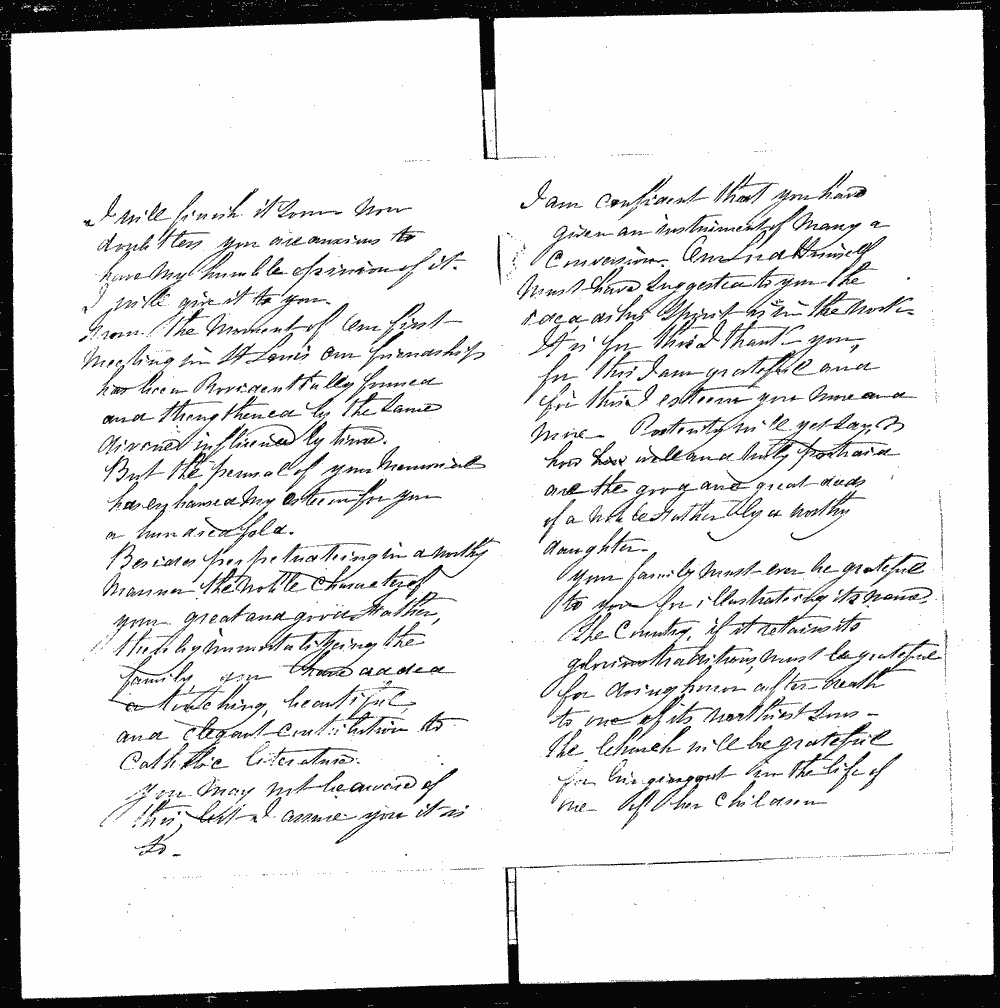 I will finish it soon now
doubtless you are anxious to
have my humble opinion of it.
I will give it to you.
From the moment of our first
meeting in St Louis our friendship
has been Providentially formed
and strengthened by the same
divine influence by time.
But the perusal of your Memorial
has enhanced my esteem for you
a hundred fold.
Besides perpetuating in a worthy
manner the noble character of
your great and good Father,
thereby immortalizing the
family you have added
a touching, beautiful,
and elegant contribution to
Catholic literature.
You may not be aware of
this, but I assure you it is
so -
I am confident that you have
given an instrument of many a
conversion. Our Lord Himself
must have suggested to you the
idea as his Spirit is in the work -
It is for this I thank you,
for this I am grateful and
for this I esteem you more and
more - Posterity will yet say
how well and truly portraid
are the good and great deeds
of a noble Father by a worthy
daughter.
Your family must ever be grateful
to you for illustrating its name,
The Country, if it retains its
glorious traditions, must be grateful
for doing honor after death
to one of its worthiest sons -
The Church will be grateful
for bringing out in the life of
one of her children